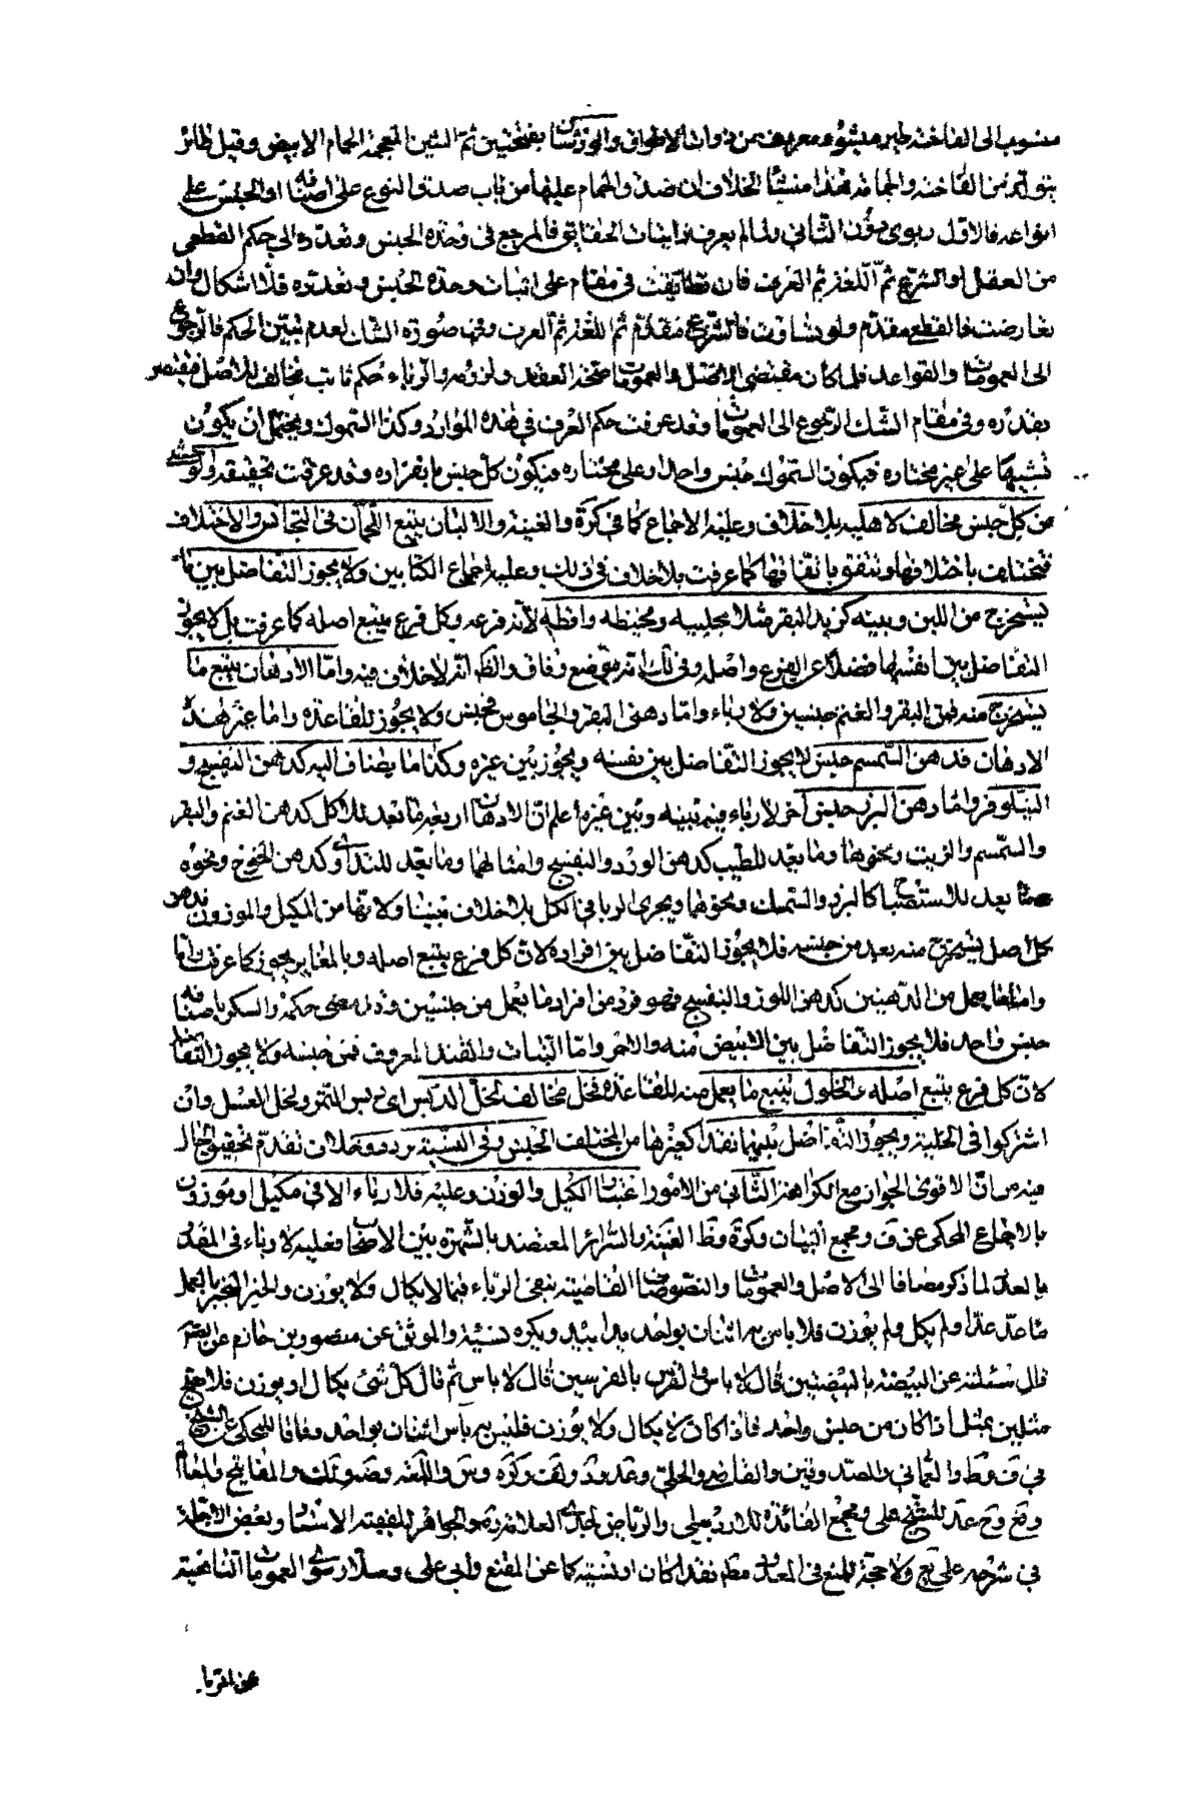 منسوب الى الفاختة طير مشؤم معروف من ذوات الاطواق والورشان بفتحتين ثم الشين المعجمة الحمام الابيض وقيل طائر
يتولد من الفاختة والحمامة فهذا منشأ الخلاف ان صدق الحمام عليها من باب صدق النوع على اصنافه او الجنس على
انواعه فالاول ربوى دون الثانى ولما لم يعرف ذاتيات الحقايق فالمرجع فى وحدة الجنس وتعدده الى حكم القطعى
من العقل او الشرع ثم اللغة ثم العرف فان تطابقت فى مقام على اثبات وحدة الجنس وتعدده فلا اشكال وان
تعارضت فالقطع مقدم ولو تساوت فالشرع مقدم ثم اللغة ثم العرف وفى صورة الشك لعدم تبين الحكم فالرجوع
الى العمومات والقواعد فلما كان مقتضى الاصل والعمومات صحة العقد ولزومه والرباء حكم ثابت مخالف للاصل فيقتصر
بقدره وفى مقام الشك الرجوع الى العمومات وقد عرفت حكم العرف فى هذه الموارد وكذا السموك ويحتمل ان يكون
تشبيها على غير مختاره فيكون السموك جنس واحد او على مختاره فيكون كل جنس بانفراده وقد عرفت تحقيقه والوحشى
من كل جنس مخالف لاهليه بلا خلاف وعليه الاجماع كما فى كرة والغنية والالبان يتبع اللحمان فى التجانس والاختلاف
فتختلف باختلافها وتتفق باتفاقها كما عرفت بلا خلاف فى ذلك وعليه اجماع الكتابين ولا يجوز التفاضل بين ما
يستخرج من اللبن وبينه كزبد البقر مثلا بحليبه ومخيضه واقطه لانه فرعه وكل فرع يتبع اصله كما عرفت بل لا يجوز
التفاضل بين انفسها فضلا عن الفرع واصله وفى لك انه موضع وفاق والظ انه لا خلاف فيه واما الادهان يتبع ما
يستخرج منه فمن البقر والغنم جنسين ولا رباء واما دهنى البقر والجاموس فجنس ولا يجوز للقاعدة واما غير هذه
الادهان فدهن السمسم جنس لا يجوز التفاضل بين نفسه ويجوز بين غيره وكذا ما يضاف اليه كدهن البنفسج و
النيلوفر واما دهن البزر جنس آخر لا رباء فيه بينه وبين غيره اعلم ان الادهان اربعة ما يعد للاكل كدهن الغنم والبقر
والسمسم والزيت ونحوها وما يعد للطيب كدهن الورد والبنفسج وامثالها وما يعد للتداوى كدهن الخروع ونحوه
وما يعد للاستصباح كالبزر والسمك ونحوها ويجرى الربا فى الكل بلا خلاف بيننا ولانها من المكيل والموزون فدهن
كل اصل يستخرج منه يعد من جنسه فلا يجوز التفاضل بين افراده لان كل فرع يتبع اصله وبالمغاير يجوز كما عرفت واما
وامثالها يعمل من الدهنين كدهن اللوز والبنفسج فهو فرد من افراد ما يعمل من جنسين وقد مضى حكمه والسكر باصنافه
جنس واحد فلا يجوز التفاضل بين الابيض منه والاحمر واما النبات والقند المعروف فمن جنسه ولا يجوز التفاضل
لان كل فرع يتبع اصله والخلول يتبع ما يعمل منه للقاعدة فخل مخالف لخل الدبس اى دبس التمر ولخل العسل وان
اشتركوا فى الخلية ويجوز التفاضل بينهما نقدا كغيرها من المختلف الجنس وفى النسية تردد وخلاف تقدم تحقيق الحال
فيه من ان الاقوى الجواز مع الكراهة الثانى من الامور اعتبار الكيل والوزن وعليه فلا رباء الا فى مكيل او موزون
بالاجماع المحكى عن ف ومجمع البيان وكرة وظ الغنية والسرائر المعتضد بالشهرة بين الاصحاب فعليه لا رباء فى المقدر
بالعد لما ذكر مضافا الى الاصل والعمومات والنصوصات القاضية بنفى الرباء فيما لا يكال ولا يوزن والخبر المنجبر بالعمل
ما عد عدا ولم يكل ولم يوزن فلا باس به اثنان بواحد يدا بيد ويكره نسيئة والموثق عن منصور بن حازم عن بصير
قال سئلته عن البيضة بالبيضتين قال لا باس والفرس بالفرسين قال لا باس ثم قال كل شئ يكال او يوزن فلا يصلح
مثلين بمثل اذا كان من جنس واحد فاذا كان لا يكال ولا يوزن فليس به باس اثنان بواحد وفاقا للمحكى عن الشيخ
فى ف وط والعمانى والصدوقين والقاضى والحلى وعد ود ولف وكره وس واللمعة وضه ولك والمفاتيح
للشيخ على ومجمع الفائدة للاردبيلى والرياض لجدى العلامة والجواهر لفقيه
فى شرحه على يع ولا حجة للمنع فى المعدود مطلقا نقدا كان او نسيئة كما عن المقنع وابى على وسلار سوى العمومات الناهية
عن الربا